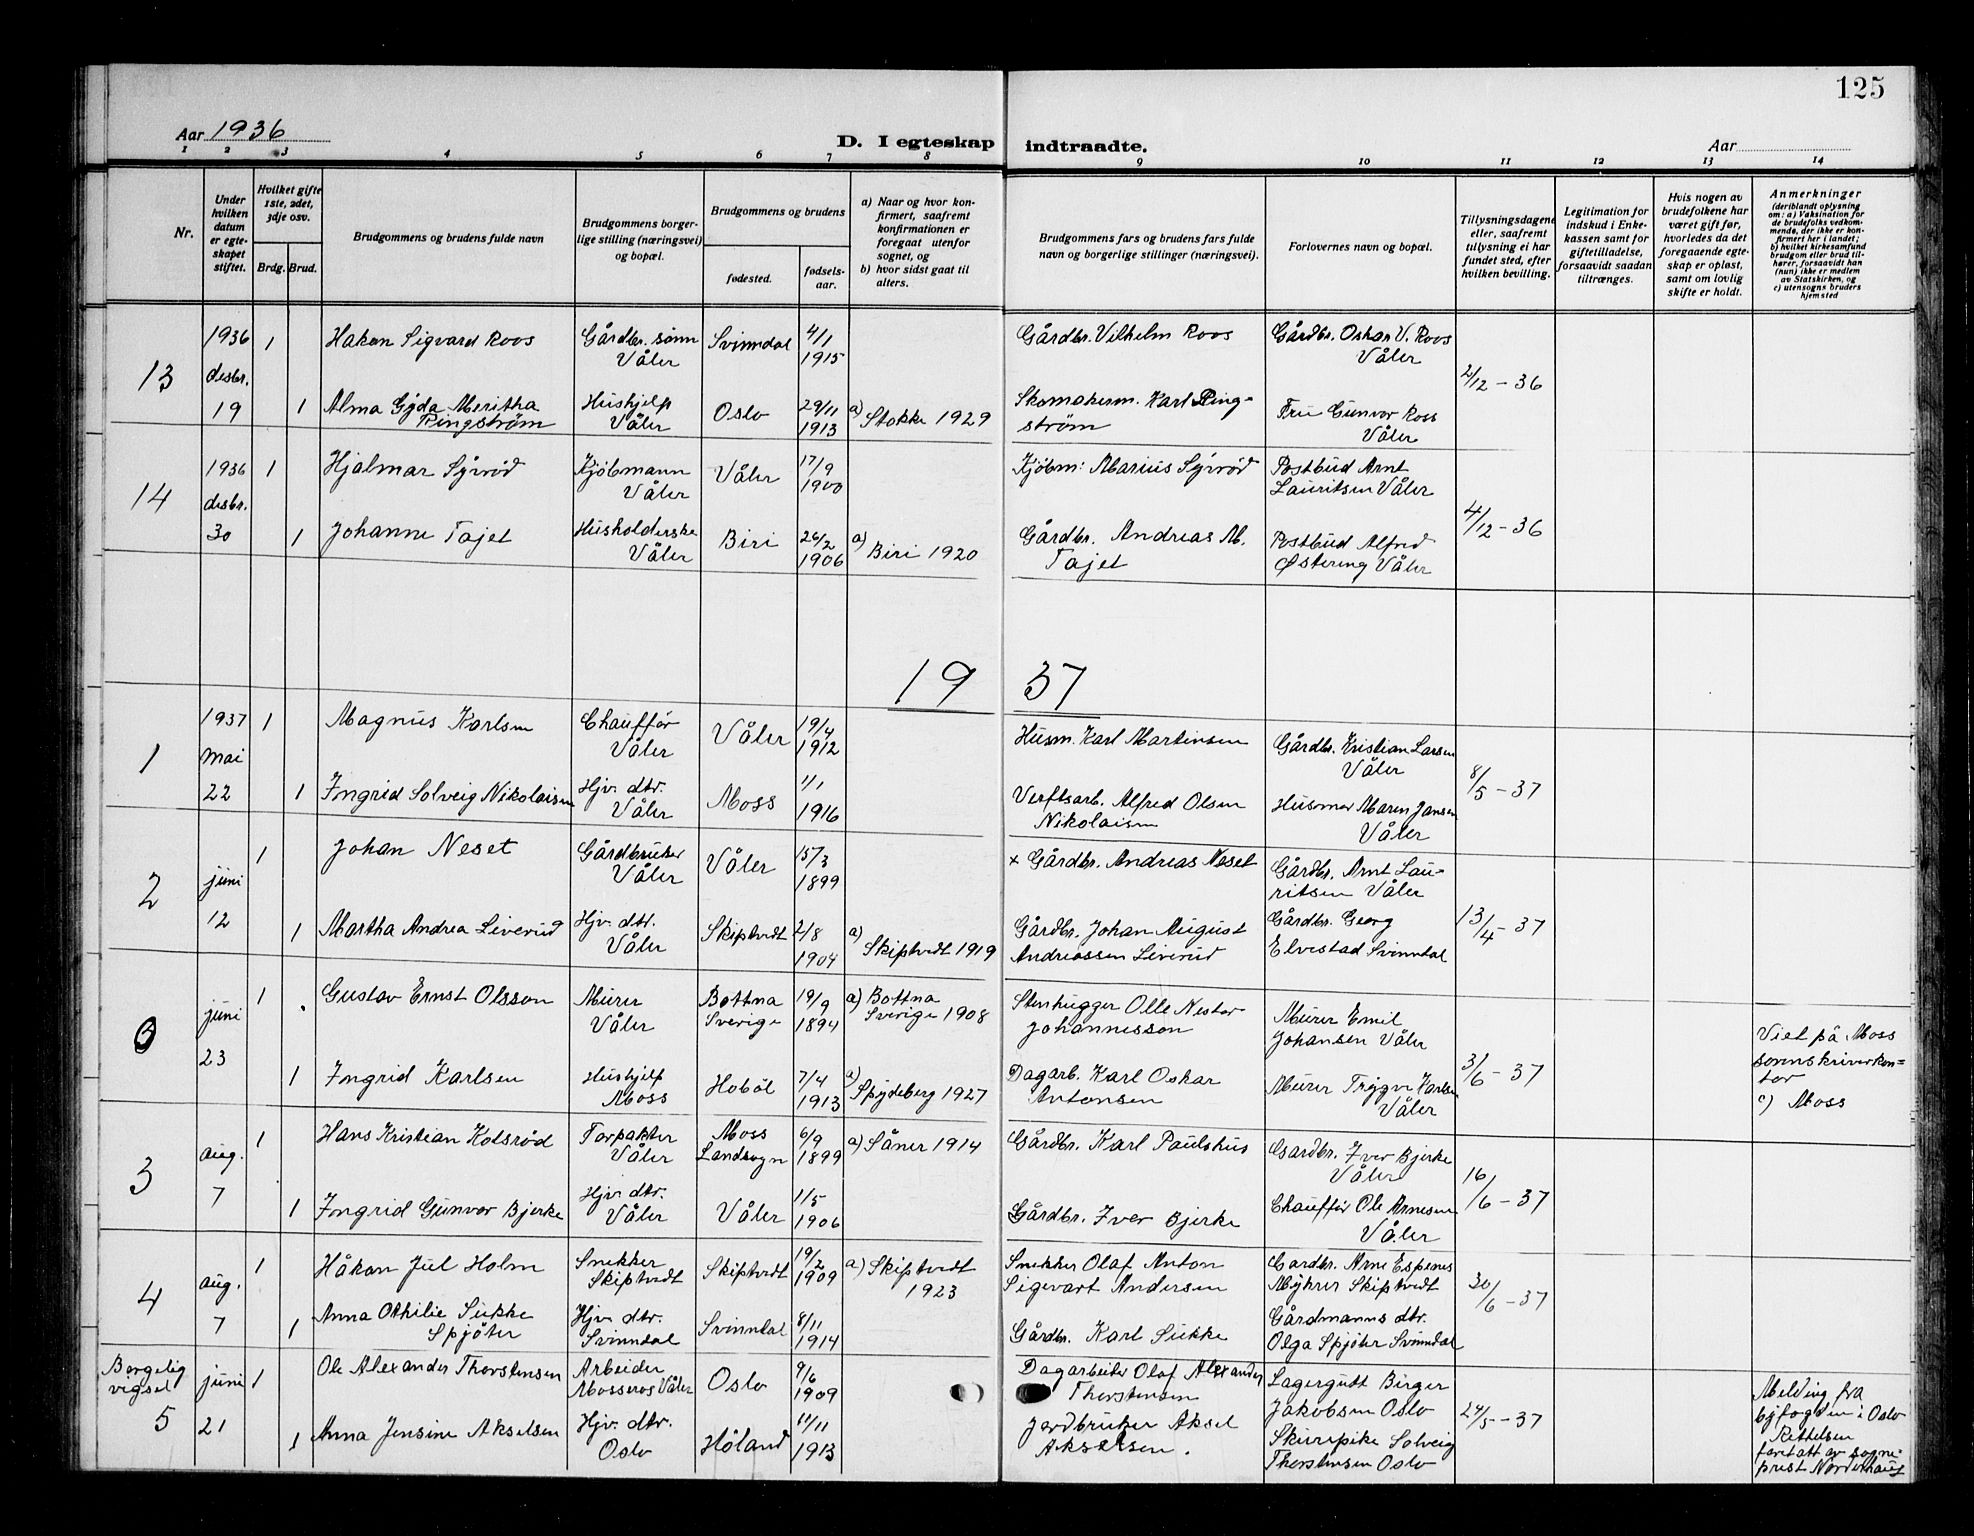 125
Aar 1936
D. I egteskap indtraadte.
Aar
1 2 3 4 5 6 7 8 9 10 11 12 13 14
Nr.
Under hvilken datum er egte-skapet stiftet.
Hvilket gifte 1ste, 2det, 3dje osv.
Brdg. Brud.
Brudgommens og brudens fulde navn
Brudgommens borger-lige stilling (næringsvei) og bopæl.
Brudgommens og brudens
fødested. fødsels-aar.
a) Naar og hvor kon-firmert, saafremt konfirmationen er foregaat utenfor sognet, og
b) hvor sidst gaat til alters.
Brudgommens fars og brudens fars fulde navn og borgerlige stillinger (næringsvei).
Forlovernes navn og bopæl.
Tillysningsdagene eller, saafremt tillysning ei har fundet sted, efter hvilken bevilling.
Legitimation for indskud i Enke-kassen samt for giftetilladelse, forsaavidt saadan tiltrænges.
Hvis nogen av brudefolkene har været gift før, hvorledes da det foregaaende egte-skap er opløst, samt om lovlig skifte er holdt.
Anmerkninger
(deriblandt oplysning om: a) Vaksination for de brudefolks vedkom-mende, der ikke er kon-firmert her i landet; b) hvilket kirkesamfund brudgom eller brud til-hører, forsaavidt han (hun) ikke er medlem av Statskirken, og c) utensogns bruders hjemsted
13 1936 desbr. 19
1 Hakon Sigvard Roos Gårdbr. sønn Våler Svinndal 4/1 1915 Gårdbr. Vilhelm Roos Gårdbr. Oskar V. Roos Våler 2/12 - 36
1 Alma Gyda Meritha Ringstrøm Hushjelp Våler Oslo 29/11 1913 a) Stokke 1929 Skomakerm. Karl Ring-strøm Frue Gunvor Ross Våler
14 1936 desbr. 30
1 Hjalmar Syverød Kjøbmann Våler Våler 17/9 1900 Kjøbm: Marius Syverød Postbud Arnt Lauritsen Våler 4/12 - 36
1 Johanne Tajet Husholderske Våler Biri 26/2 1906 a) Biri 1920 Gårdbr. Andreas M. Tajet Postbud Alfred Østereng Våler
19 37
1 1937 mai 22
1 Magnus Karlsen Chauffør Våler Våler 19/4 1912 Husm. Karl Martinsen Gårdbr. Kristian Larsen Våler 8/5 - 37
1 Ingrid Solveig Nikolaisen Hjv. dtr. Våler Moss 11/1 1916 Verftsarb. Alfred Olsen Nikolaisen Husmor Maren Jansen Våler
2 juni 12
1 Johan Neset Gårdbruker Våler Våler 15/3 1899 x Gårdbr. Andreas Neset Gårdbr. Arnt Lau-ritsen Våler 13/4 - 37
1 Martha Andrea Liverud Hjv. dtr. Våler Skiptvedt 2/8 1904 a) Skiptvedt 1919 Gårdbr. Johan August Andreassen Liverud Gårdbr. Georg Elvestad Svinndal
0 juni 23
1 Gustav Ernst Olsson Murer Våler Bottna Sverige 19/9 1894 a) Bottna Sverige 1908 Stenhugger Olle Nestor Johannesson Murer Emil Johansen Våler 3/6 - 37 Viet på Moss sorenskriverkon-tor c) Moss
1 Ingrid Karlsen Hushjelp Moss Hobøl 7/4 1913 a) Spydeberg 1927 Dagarb. Karl Oskar Antonsen Murer Trygve Karlsen Våler
3 aug. 7
1 Hans Kristian Kolsrød Forpakter Våler Moss Landsogn 6/9 1899 a) Såner 1914 Gårdbr. Karl Paulshus Gaardbr. Iver Bjerke Våler 16/6 - 37
1 Ingrid Gunvor Bjerke Hjv. dtr. Våler Våler 1/5 1906 Gårdbr. Iver Bjerke Chauffør Ole Arnesen Våler
4 aug. 7
1 Håkon Jul Holm Snekker Skiptvedt Skiptvedt 19/2 1909 a) Skiptvedt 1923 Snekker Olaf Anton Sigevart Andersen Gardbr. Arne Espenes Myhrer Skiptvedt 30/6 - 37
1 Anna Othilie Sukke Spjøter Hjv. dtr. Svinndal Svinndal 8/11 1914 Gårdbr. Karl Sukke Gårdmanns dtr. Olga Spjøter Svinndal
Borgelig vigsel 5 juni 21
1 Ole Alexander Thorstensen Arbeider Mosseros Våler Oslo 9/6 1909 Dagarbeider Olaf Alexander Thorstensen Lagergutt Birger Jakobsen Oslo 24/5 - 37 Melding fra byfogden i Oslo Rettelsen foretatt av sogne-prest Norderhaug
1 Anna Jensine Akselsen Hjv. dtr. Oslo Høland 11/11 1913 Jordbruker Aksel Akselsen. Skurepike Solveig Thorstensen Oslo